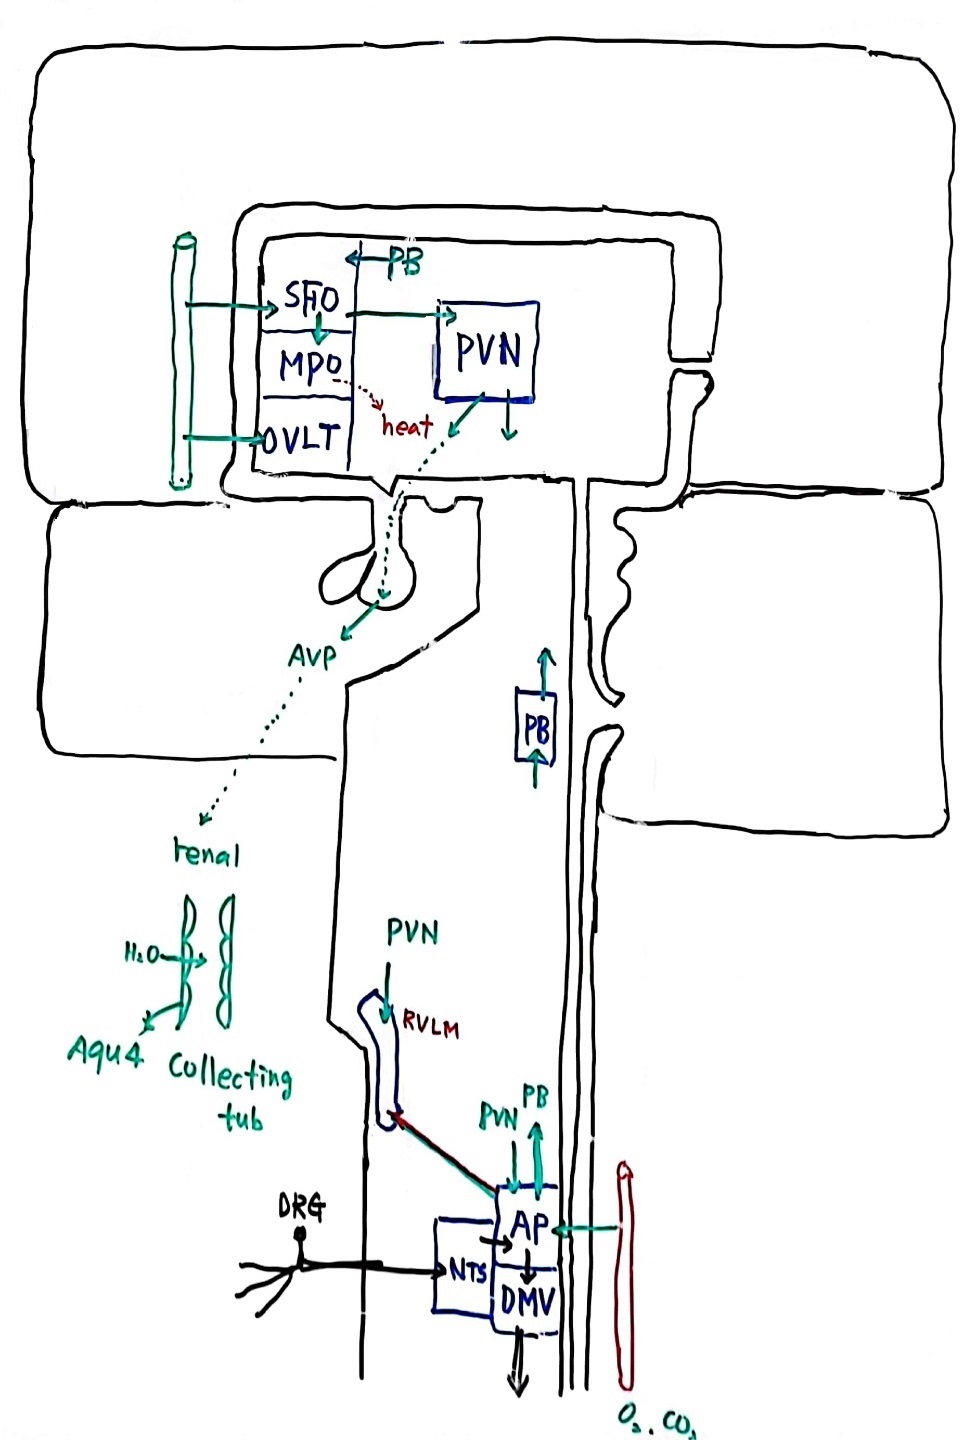 PB
SFO
MPO
PVN
heat
OVLT
AVP
PB
renal
PVN
H₂O
RVLM
Aqu4
Collecting
tub
PB
PVN
DRG
AP
NTS
DMV
O₂. CO₂